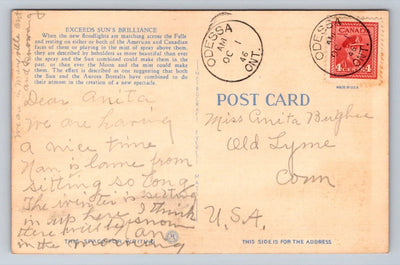 EXCEEDS SUN'S BRILLIANCE
When the new floodlights are marching across the Falls
and resting on either or both of the American and Canadian
faces of them or playing in the mist of spray above them,
they are described by beholders as more beautiful than ever
the spray and the Sun combined could make them in the
past, or than ever the Moon and the mist could make
them. The effect is described as one suggesting that both
the Sun and the Aurora Borealis have combined to do
their utmost in the creation of a new spectacle.
Dear Anita,
We are having
a nice time
Nan is lame from
sitting so long
The winter is setting
in up here I think
there will be snow
in the morning
THIS SPACE FOR WRITING
ODESSA
AM
OC
46
ONT.
ODESSA
AM
46
ONT.
CANADA
4 4
MADE IN U.S.A.
POST CARD
Miss Anita
Old Lyme
Conn
U.S.A.
THIS SIDE IS FOR THE ADDRESS